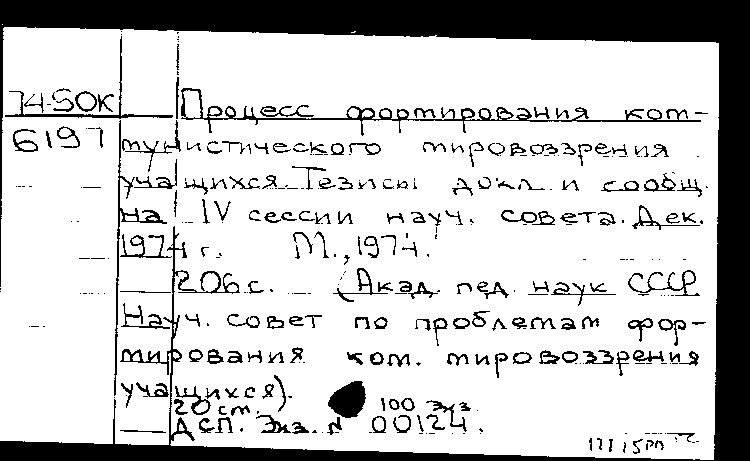 74-50К
6197
Процесс формирования ком-
мунистического мировоззрения
учащихся. Тезисы докл. и сообщ.
на IV сессии науч. совета. Дек.
1974 г. М., 1974.
206 с. (Акад. пед. наук СССР
Науч. совет по проблемам фор-
мирования ком. мировоззрения
учащихся).
20 ст. 100 экз.
ДСП. Экз. № 00124.